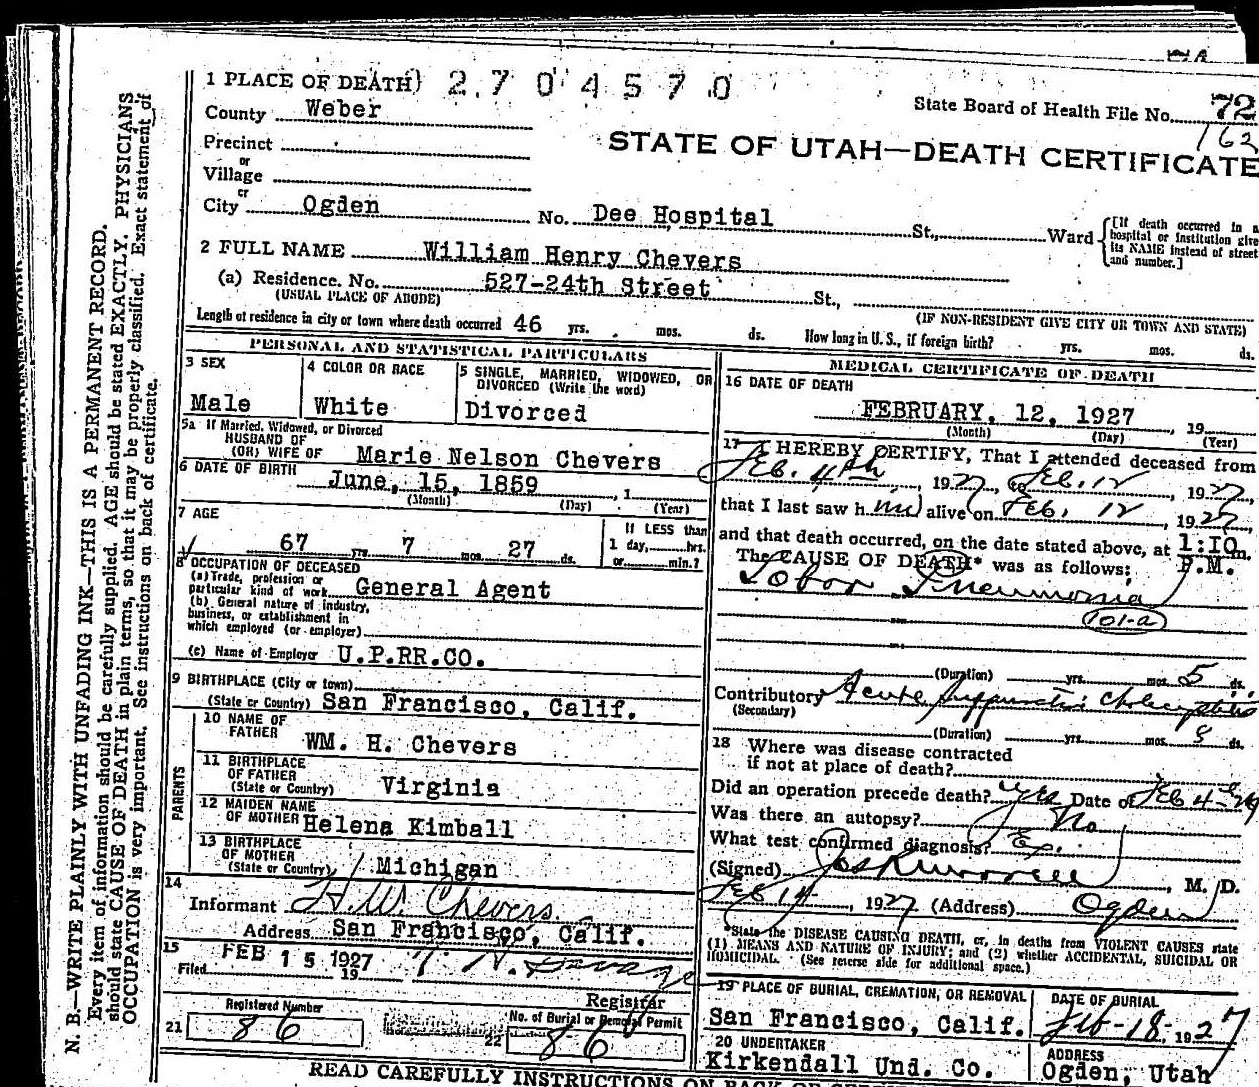 1 PLACE OF DEATH) 2 7 0 4 5 7 0
State Board of Health File No. 72
162
County Weber
STATE OF UTAH—DEATH CERTIFICATE
Precinct
or
Village
or
City Ogden No. Dee Hospital St., Ward {[If death occurred in a hospital or institution give its NAME instead of street and number.]
2 FULL NAME William Henry Chevers
(a) Residence. No. 527-24th Street St.,
(USUAL PLACE OF ABODE) (IF NON-RESIDENT GIVE CITY OR TOWN AND STATE)
Length of residence in city or town where death occurred 46 yrs. mos. ds. How long in U. S., if foreign birth? yrs. mos. ds.
PERSONAL AND STATISTICAL PARTICULARS
3 SEX
Male
4 COLOR OR RACE
White
5 SINGLE, MARRIED, WIDOWED, OR
DIVORCED (Write the word)
Divorced
5a If Married, Widowed, or Divorced
HUSBAND OF
(OR) WIFE OF Marie Nelson Chevers
6 DATE OF BIRTH June, 15, 1859, 1
(Month) (Day) (Year)
7 AGE
67 yrs 7 mos. 27 ds.
If LESS than
1 day, hrs.
or min.?
8 OCCUPATION OF DECEASED
(a) Trade, profession or
particular kind of work General Agent
(b) General nature of industry,
business, or establishment in
which employed (or employer)
(c) Name of Employer U.P.RR.CO.
9 BIRTHPLACE (City or town)
(State or Country) San Francisco, Calif.
PARENTS
10 NAME OF
FATHER WM. H. Chevers
11 BIRTHPLACE
OF FATHER
(State or Country) Virginia
12 MAIDEN NAME
OF MOTHER Helena Kimball
13 BIRTHPLACE
OF MOTHER
(State or Country) Michigan
14
Informant H. W. Chevers
Address San Francisco, Calif.
15
Filed FEB 15 1927 19
Registrar
Registered Number
21 86
No. of Burial or Removal Permit
22 86
MEDICAL CERTIFICATE OF DEATH
16 DATE OF DEATH
FEBRUARY, 12, 1927, 19
(Month) (Day) (Year)
17 I HEREBY CERTIFY, That I attended deceased from
Feb. 4th, 1927, to Feb. 12, 1927
that I last saw him alive on Feb. 12, 1927,
and that death occurred, on the date stated above, at 1:10 m.
P.M.
The CAUSE OF DEATH* was as follows:
Lobar Pneumonia
101-a
(Duration) yrs. mos. 5 ds.
Contributory Acute
(Secondary)
(Duration) yrs. mos. 8 ds.
18 Where was disease contracted
if not at place of death?
Did an operation precede death? Yes Date of Feb 4
Was there an autopsy? No
What test confirmed diagnosis?
(Signed), M. D.
Feb 14, 1927 (Address) Ogden
*State the DISEASE CAUSING DEATH, or, in deaths from VIOLENT CAUSES state
(1) MEANS AND NATURE OF INJURY; and (2) whether ACCIDENTAL, SUICIDAL OR
HOMICIDAL. (See reverse side for additional space.)
19 PLACE OF BURIAL, CREMATION, OR REMOVAL
San Francisco, Calif.
DATE OF BURIAL
Feb-18-1927
20 UNDERTAKER
Kirkendall Und. Co.
ADDRESS
Ogden, Utah
READ CAREFULLY INSTRUCTIONS ON BACK OF
N. B.—WRITE PLAINLY WITH UNFADING INK—THIS IS A PERMANENT RECORD.
Every item of information should be carefully supplied. AGE should be stated EXACTLY. PHYSICIANS
should state CAUSE OF DEATH in plain terms, so that it may be properly classified. Exact statement of
OCCUPATION is very important. See instructions on back of certificate.